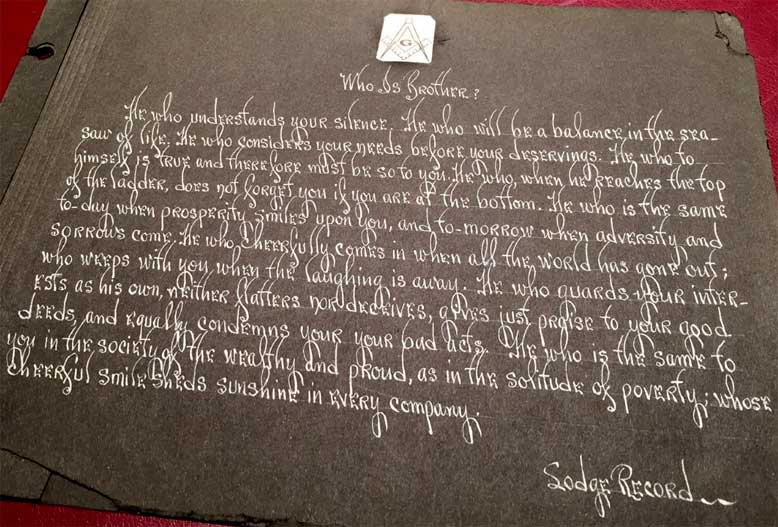 G
Who Is Brother?
He who understands your silence. He who will be a balance in the sea-
saw of life. He who considers your needs before your deservings. He who to
himself is true and therefore must be so to you. He who, when he reaches the top
of the ladder, does not forget you if you are at the bottom. He who is the same
to-day when prosperity smiles upon you, and to-morrow when adversity and
sorrows come. He who cheerfully comes in when all the world has gone out;
who weeps with you when the laughing is away. He who guards your inter-
ests as his own, neither flatters nor deceives, gives just praise to your good
deeds, and equally condemns your your bad acts. He who is the same to
you in the society of the wealthy and proud, as in the solitude of poverty; whose
cheerful smile sheds sunshine in every company.
Lodge Record